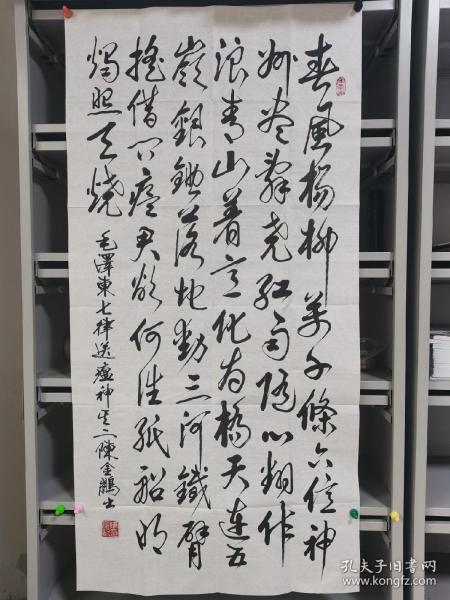 春風楊柳萬千條六億神
州盡舜堯紅雨隨心翻作
浪青山着意化為橋天連五
嶺銀鋤落地動三河鐵臂
搖借問瘟君欲何往紙船明
燭照天燒
毛澤東七律送瘟神其二陳金鵬書
孔夫子旧书网
kongfz.com